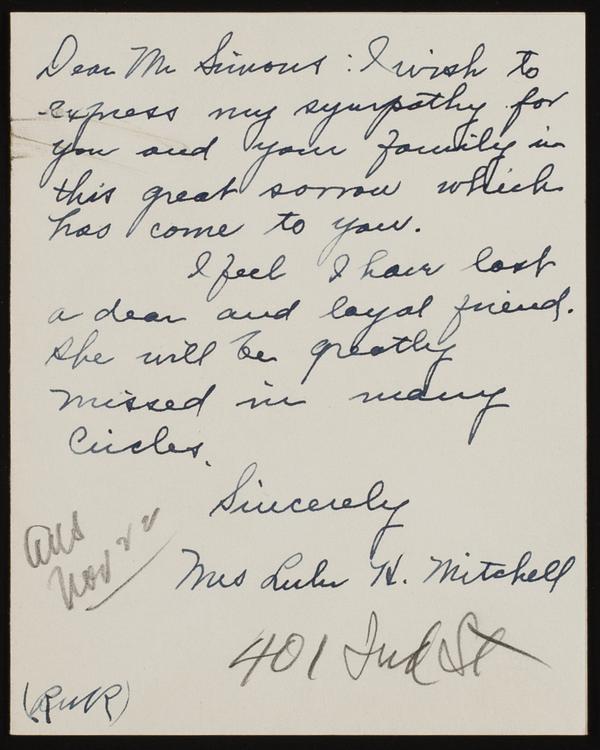 Dear Mr Simons: I wish to
express my sympathy for
you and your family in
this great sorrow which
has come to you.
I feel I have lost
a dear and loyal friend.
She will be greatly
missed in many
Circles.
Sincerely
Mrs Lulu H. Mitchell
Ans
Nov 22
401 Ind St